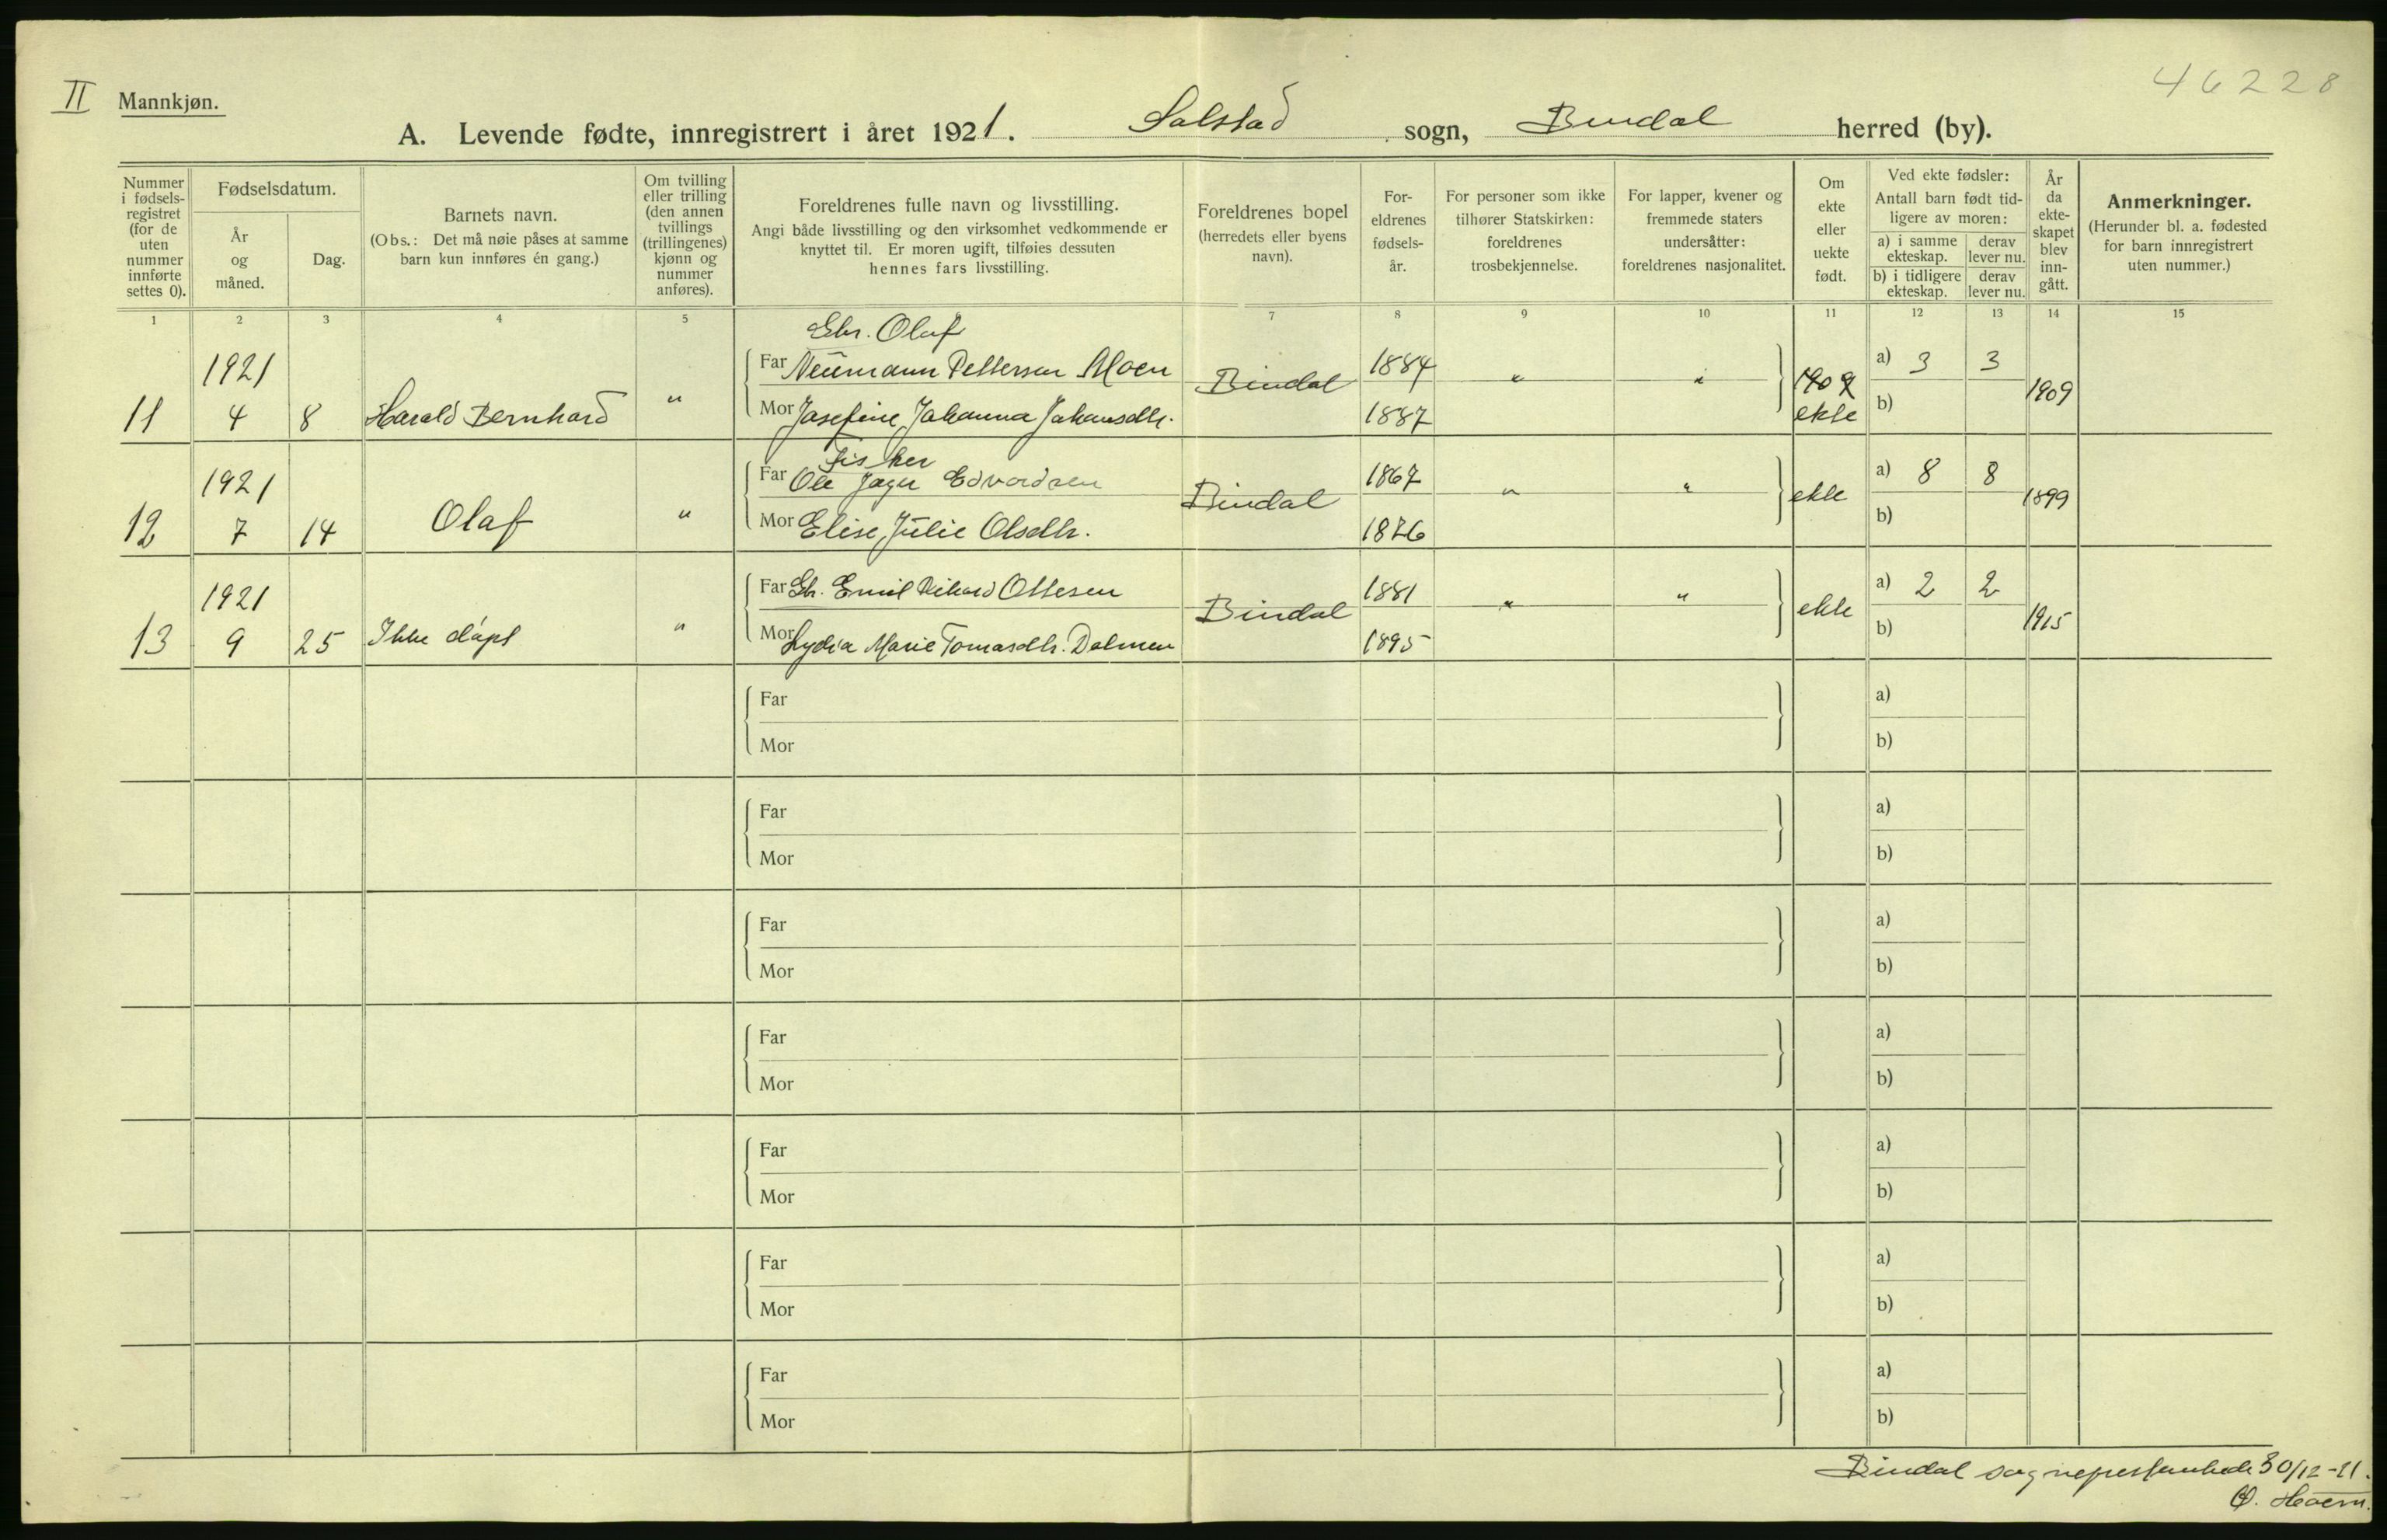 II Mannkjøn. 46228
A. Levende fødte, innregistrert i året 1921. Salstad sogn, Bindal herred (by).
Nummer i fødsels-registret (for de uten nummer innførte settes 0).
Fødselsdatum.
År og måned.
Dag.
Barnets navn.
(Obs.: Det må nøie påses at samme barn kun innføres én gang.)
Om tvilling eller trilling (den annen tvillings (trillingenes) kjønn og nummer anføres).
Foreldrenes fulle navn og livsstilling.
Angi både livsstilling og den virksomhet vedkommende er knyttet til. Er moren ugift, tilføies dessuten hennes fars livsstilling.
Foreldrenes bopel (herredets eller byens navn).
For-eldrenes fødsels-år.
For personer som ikke tilhører Statskirken: foreldrenes trosbekjennelse.
For lapper, kvener og fremmede staters undersåtter: foreldrenes nasjonalitet.
Om ekte eller uekte født.
Ved ekte fødsler:
Antall barn født tid-ligere av moren:
a) i samme ekteskap. derav lever nu.
b) i tidligere ekteskap. derav lever nu.
År da ekte-skapet blev inn-gått.
Anmerkninger.
(Herunder bl. a. fødested for barn innregistrert uten nummer.)
1 2 3 4 5 7 8 9 10 11 12 13 14 15
Gbr. Olaf
1921 Far Neumann Pettersen Moen Bindal 1884 " " 1909 a) 3 3
11 4 8 Harald Bernhard " Mor Josefine Johanna Johansdtr. 1887 ekte b) 1909
Fisker
1921 Far Ole Jager Edvardsen Bindal 1867 " " ekte a) 8 8
12 7 14 Olaf " Mor Elise Julie Olsdtr. 1876 b) 1899
1921 Far Gbr. Emil Rikard Ottesen Bindal 1881 " " ekte a) 2 2
13 9 25 Ikke døpt " Mor Lydia Marie Tomasdtr. Dalmen 1895 b) 1915
Far a)
Mor b)
Far a)
Mor b)
Far a)
Mor b)
Far a)
Mor b)
Far a)
Mor b)
Far a)
Mor b)
Far a)
Mor b)
Bindal sogneprestembede 30/12-21.